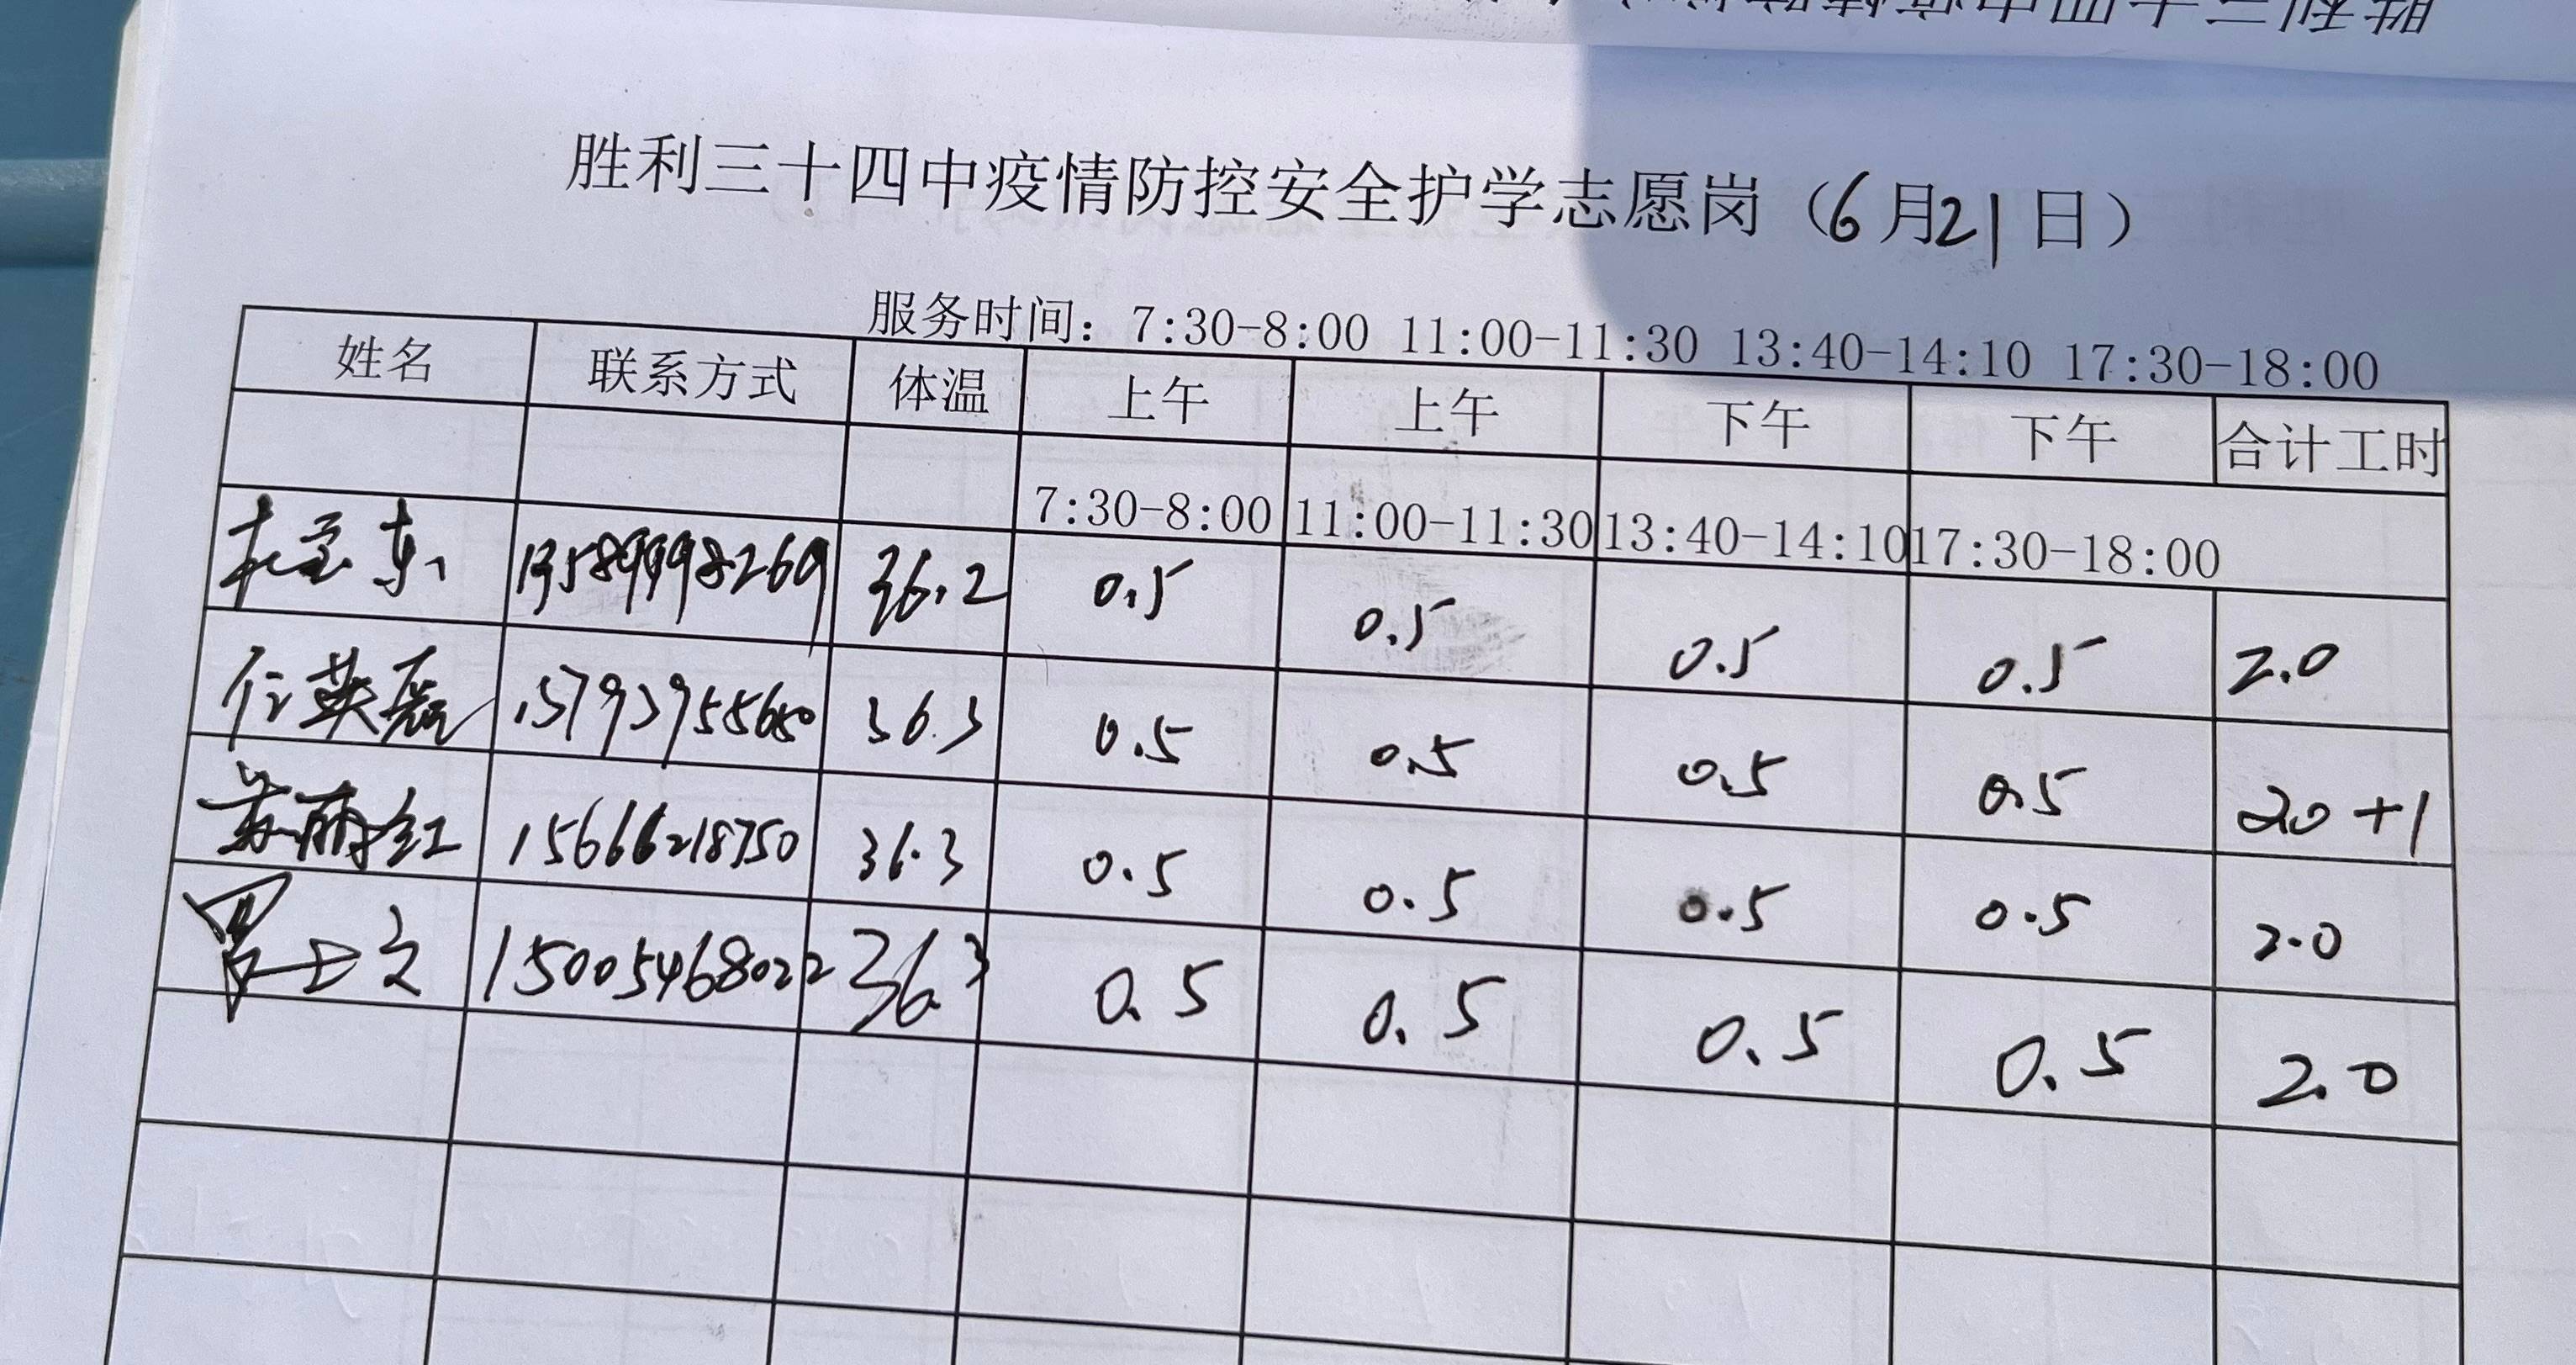 胜利三十四中疫情防控安全护学志愿岗（6月21日）
服务时间：7:30-8:00 11:00-11:30 13:40-14:10 17:30-18:00
姓名 联系方式 体温 上午 上午 下午 下午 合计工时
7:30-8:00 11:00-11:30 13:40-14:10 17:30-18:00
13589998269 36.2 0.5 0.5 0.5 0.5 2.0
36.3 0.5 0.5 0.5 0.5 2.0+1
苏丽红 15666218750 36.3 0.5 0.5 0.5 0.5 2.0
15005468022 36.3 0.5 0.5 0.5 0.5 2.0